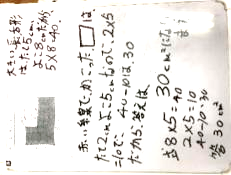 大きい長方形
は、たて5cm、
よこ8cmだから
5×8=40。
赤い線でかこった□は、
たて2cmよこ5cmなので、2×5
=10で、40-10は30
だから、答えは、
30cm²になり
ます
式8×5=40
2×5=10
40-10=30
答30cm²